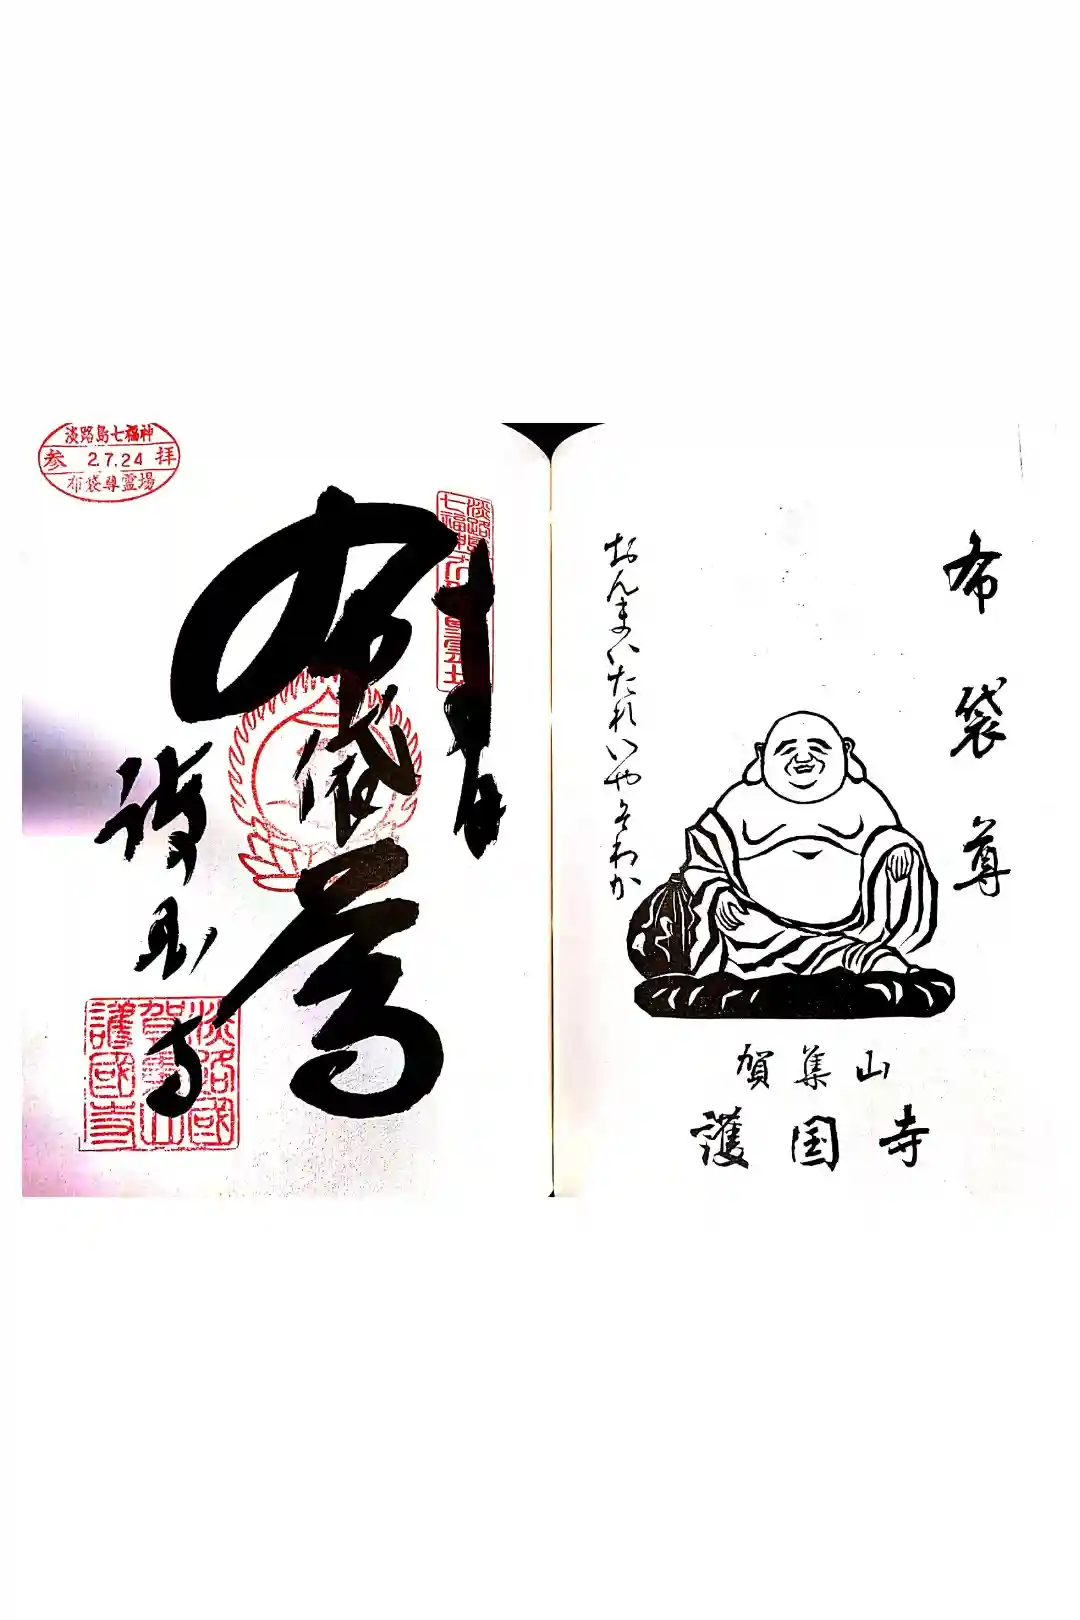 布袋尊
おんまいたれいやそわか
賀集山
護国寺
淡路島七福神
参 2.7.24 拝
布袋尊霊場
奉拝
布袋尊
護国寺
淡路國
賀集山
護國寺